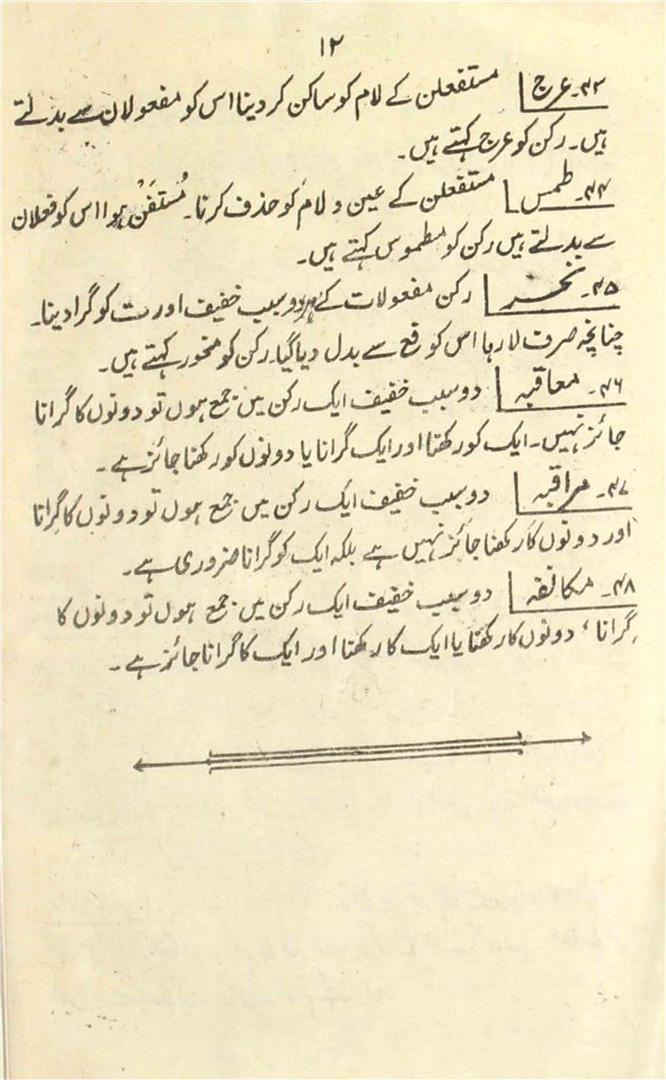 ۱۲
۴۳۔ عرج مستفعلن کے لام کو ساکن کر دینا اس کو مفعولان سے بدلتے
ہیں۔ رکن کو عرج کہتے ہیں۔
۴۴۔ طمس مستفعلن کے عین و لام کو حذف کرنا۔ مُستَفَنْ ہوا اس کو فعلان
سے بدلتے ہیں رکن کو مطموس کہتے ہیں۔
۴۵۔ نحر رکن مفعولات کے ہر دو سبب خفیف اور ت کو گرا دینا۔
چنانچہ صرف لا رہا اس کو فع سے بدل دیا گیا۔ رکن کو منحور کہتے ہیں۔
۴۶۔ معاقبہ دو سبب خفیف ایک رکن میں جمع ہوں تو دونوں کا گرانا
جائز نہیں۔ ایک کو رکھنا اور ایک گرانا یا دونوں کو رکھنا جائز ہے۔
۴۷۔ مراقبہ دو سبب خفیف ایک رکن میں جمع ہوں تو دونوں کا گرانا
اور دونوں کا رکھنا جائز نہیں ہے بلکہ ایک کو گرانا ضروری ہے۔
۴۸۔ مکانفہ دو سبب خفیف ایک رکن میں جمع ہوں تو دونوں کا
گرانا، دونوں کا رکھنا یا ایک کا رکھنا اور ایک کا گرانا جائز ہے۔